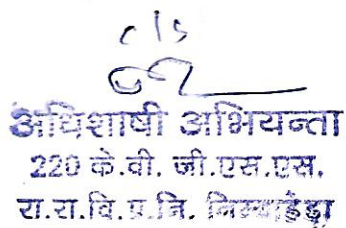 c/s
अधिशाषी अभियन्ता
220 के.वी. जी.एस.एस.
रा.रा.वि.प्र.नि. निम्बाहेड़ा